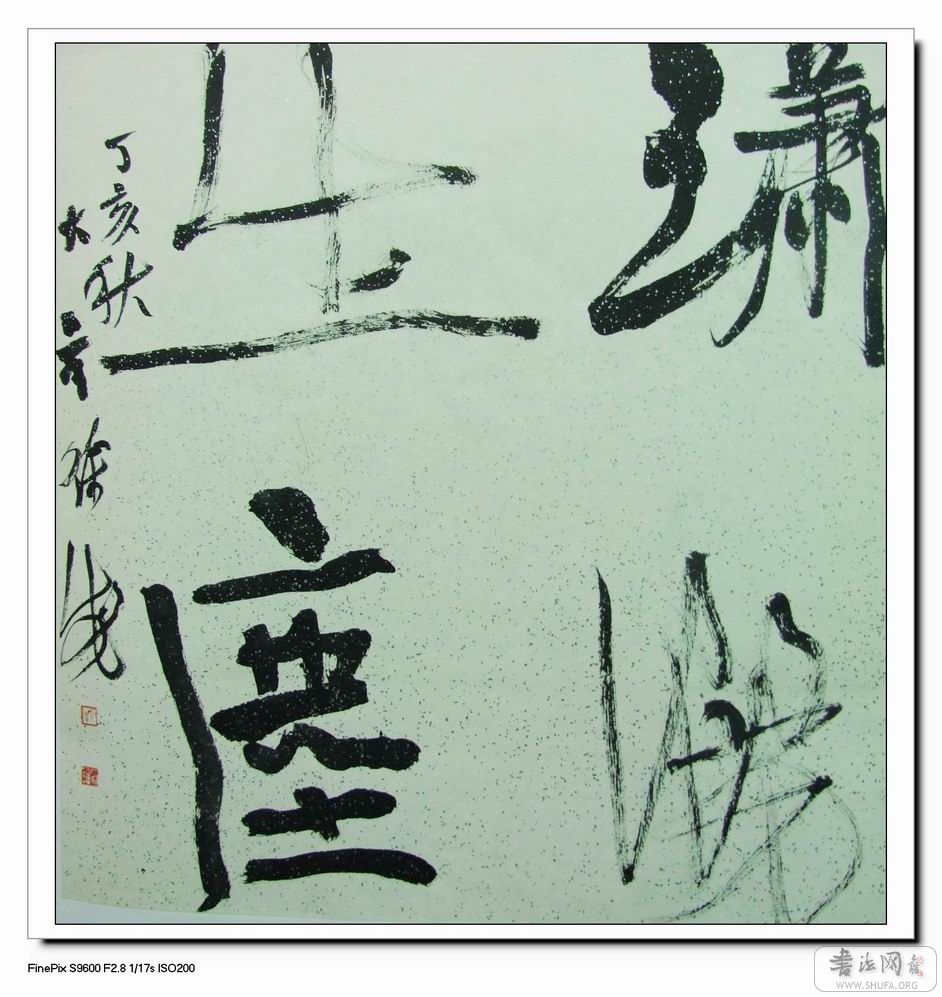 瀟灑
出塵
丁亥秋
大 徐
FinePix S9600 F2.8 1/17s ISO200
書法网
WWW.SHUFA.ORG